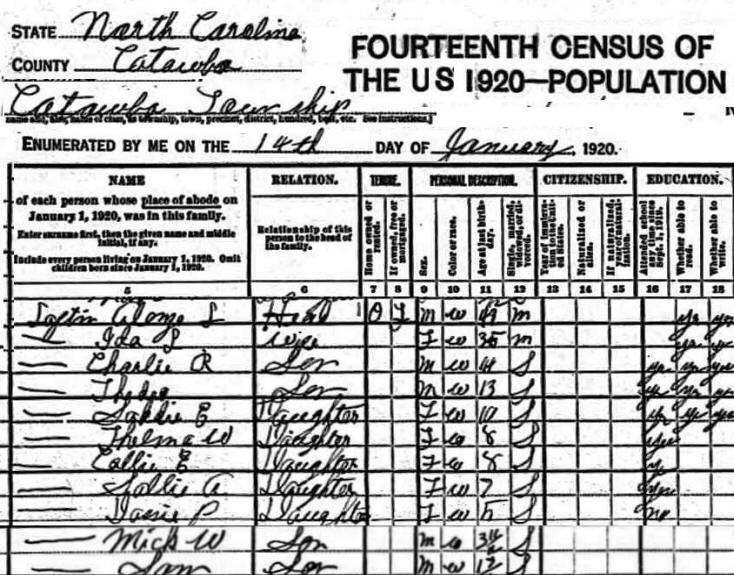 STATE North Carolina
COUNTY Catawba
FOURTEENTH CENSUS OF
THE US 1920—POPULATION
Catawba Township
ENUMERATED BY ME ON THE 14th DAY OF January, 1920.
NAME RELATION. TENURE. PERSONAL DESCRIPTION. CITIZENSHIP. EDUCATION.
of each person whose place of abode on
January 1, 1920, was in this family.
Enter surname first, then the given name and middle
initial, if any.
Include every person living on January 1, 1920. Omit
children born since January 1, 1920.
Relationship of this
person to the head of
the family.
Home owned or
rented.
If owned, free or
mortgaged.
Sex.
Color or race.
Age at last birth-
day.
Single, married,
widowed, or di-
vorced.
Year of immigra-
tion to the Unit-
ed States.
Naturalized or
alien.
If naturalized,
year of natural-
ization.
Attended school
any time since
Sept. 1, 1919.
Whether able to
read.
Whether able to
write.
5 6 7 8 9 10 11 12 13 14 15 16 17 18
Alonzo L Head O F M W M yes yes
— Ida L Wife F W M yes yes
— Charlie R Son M W 14 S yes yes yes
— Son M W 13 S yes yes yes
— E Daughter F W 10 S yes yes yes
— Thelma W Daughter F W 8 S yes
— Collie E Daughter F W 8 S yes
— Sallie A Daughter F W 7 S yes
— P Daughter F W 5 S no
— Mick W Son M W S
— Sam Son M W S